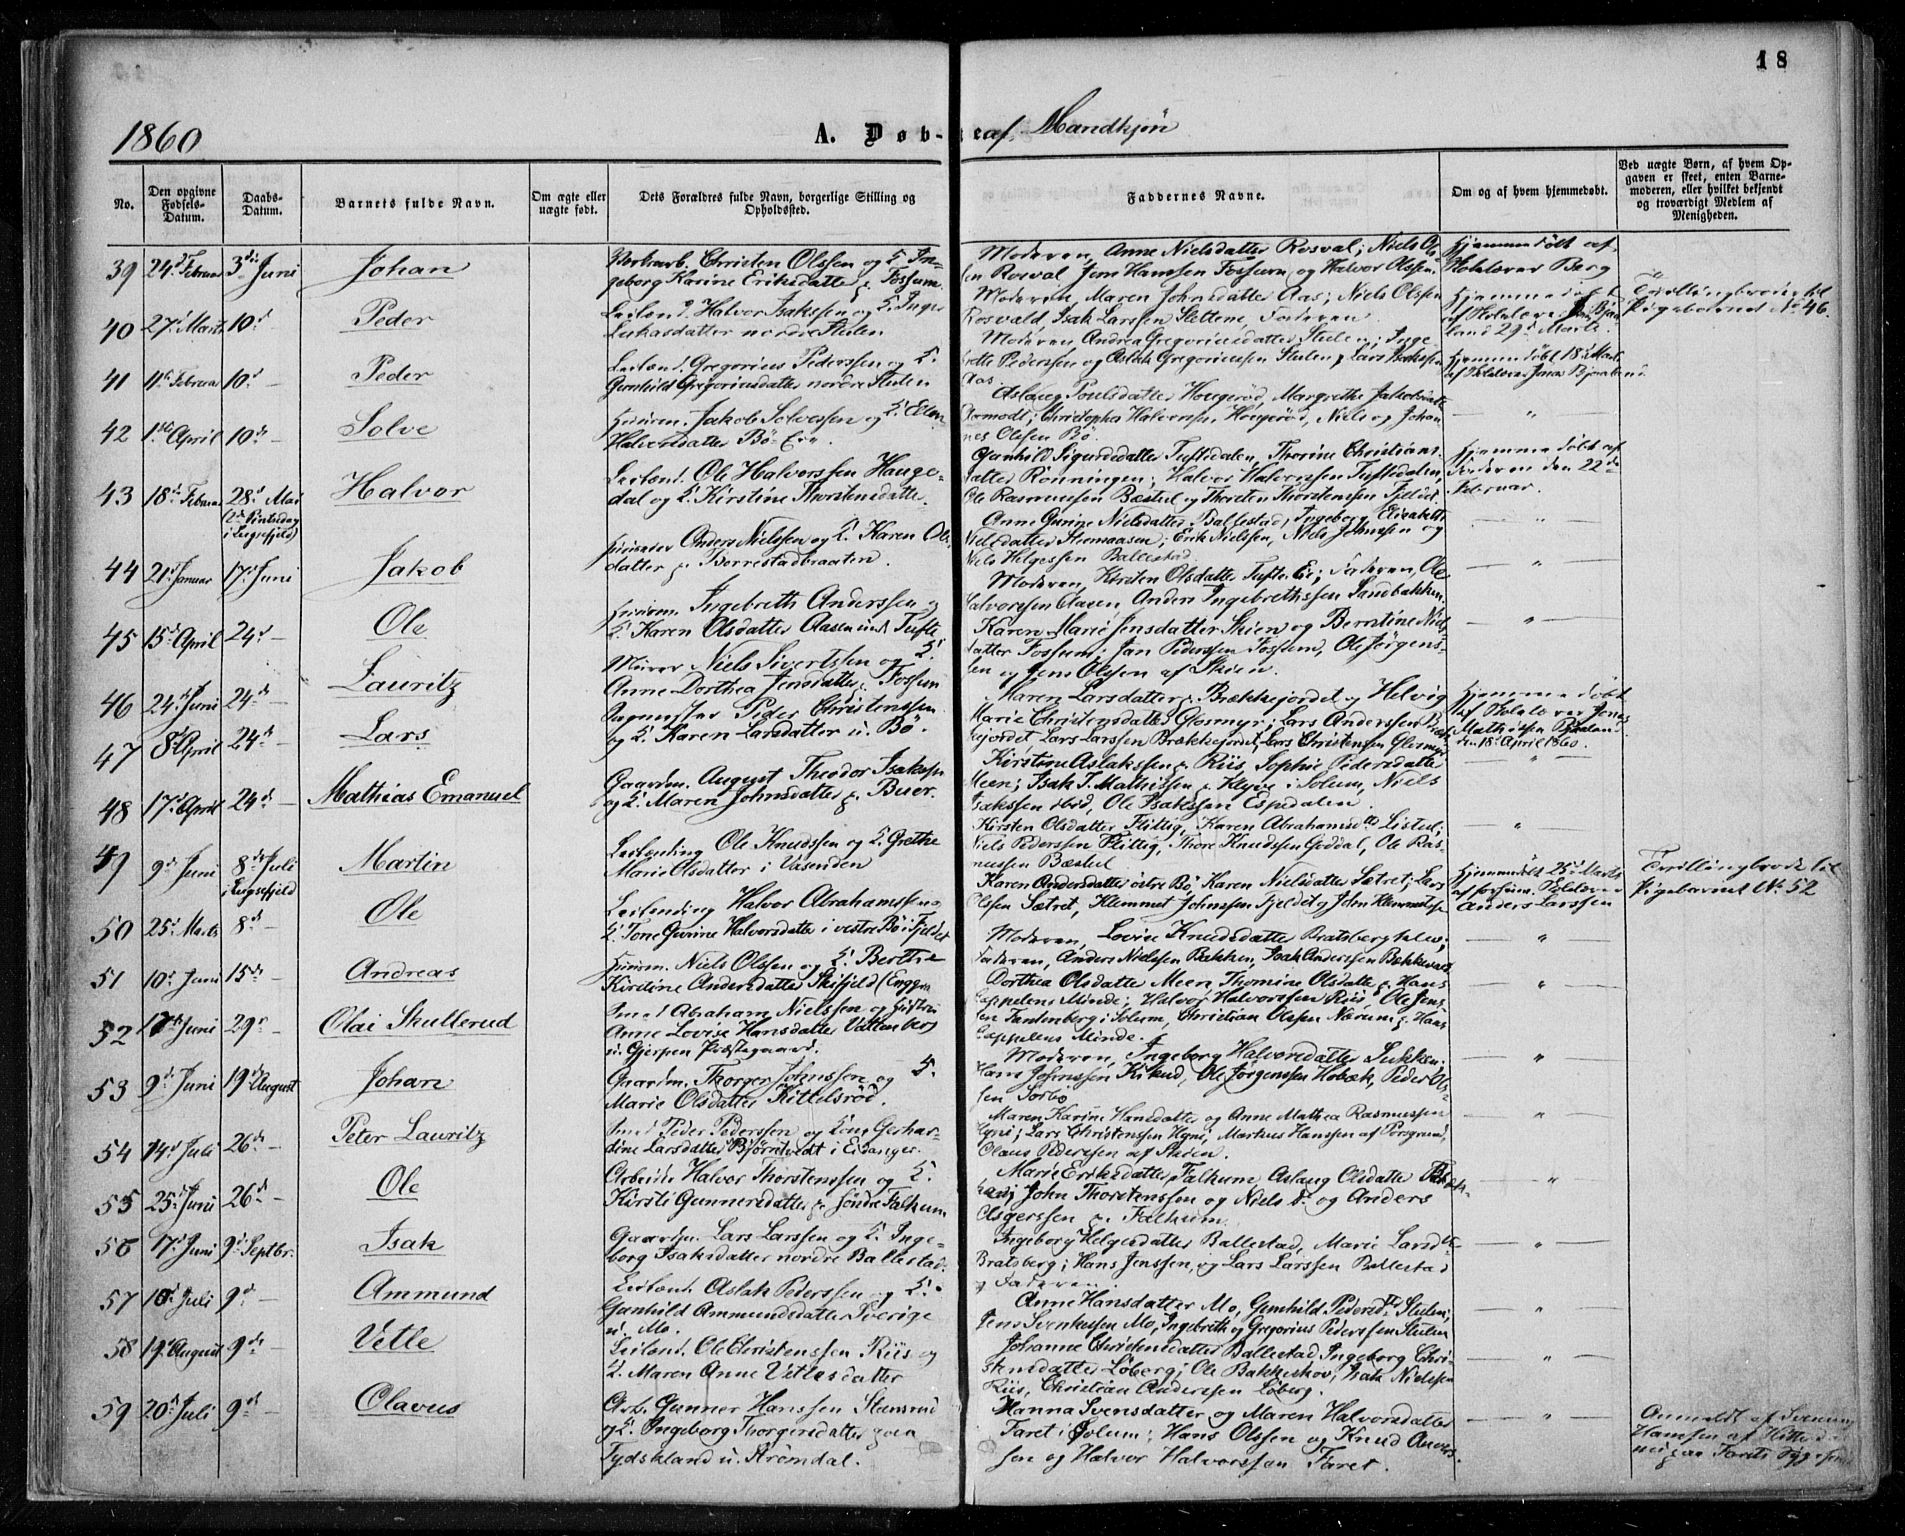 18
1860
A. Døb-
te af Mandkjøn
No.
Den opgivne Fødsels-Datum.
Daabs-Datum.
Barnets fulde Navn.
Om ægte eller uægte født.
Dets Forældres fulde Navn, borgerlige Stilling og Opholdssted.
Faddernes Navne.
Om og af hvem hjemmedøbt.
Ved uægte Børn, af hvem Opgaven er skeet, enten Barnemoderen, eller hvilket bekjendt og troværdigt Medlem af Menigheden.
39 24d Februar 3die Juni Johan
Christen Olssen og K. In-
geborg Karine Eriksdatter p. Fossum.
Moderen, Anne Nielsdatter Rosval; Niels Ol-
sen Rosval, Jens Hanssen Fossum, og Halvor Olssen.
Hjemmedøbt af
Skolelærer Berg
40 27d Marts 10d Peder
Leilænd. Halvor Isakssen og K. Inger
Lukasdatter nordre Stulen
Moderen, Maren Johnsdatter Aas; Niels Olssen
Rosvald, Isak Larssen Slettene, Faderen
Hjemmedøbt
af Skolelærer
land 29d Marts.
Tvillingbroder til
Pigebarnet No 46.
41 11te Februar 10d Peder
Leilænd. Gregorius Pederssen og K.
Gunhild Gregoriusdatter nordre Stulen
Moderen Andrea Gregoriusdatter Stulen; Inge-
breth Pederssen og Aslak Gregoriussen Stulen, Lars Isakssen
Aas.
Hjemmedøbt 18d Marts
af Skolelærer Jonas Bjaaland
42 1ste April 10de Solve
Huusm. Jakob Solvessen og K. Ellen
Halvorsdatter Bö-Eie
Aslaug Poulsdatter Hougerød, Margrethe Jakobsdatter
Aamodt; Christopher Halvorssen Hougerød, Niels og Johan-
nes Olssen Bö.
43 18de Februar 28d Mai
(2d Pintsedag
i Luxefjeld)
Halvor
Leilænd. Ole Halvorssen Hauge-
dal og K. Kirstine Thorstensdatter
Gunhild Sigurdsdatter Tuftedalen, Thorine Christians-
datter Rönningen; Halvor Halvorssen Tuftedalen,
Ole Rasmussen Bæstul og Thorsten Thorstenssen Fjeldet.
Hjemmedøbt af
Faderen den 22de
Februar.
44 21d Januar 17d Juni Jakob
Anders Nielssen og K. Karen Ols-
datter p. Borrestadbraaten.
Anne Gurine Nielsdatter Ballestad, Ingeborg Elisabeth
Nielsdatter Stromaasen; Erik Nielssen, Niels Johnssen og
Niels Helgessen Ballestad
45 15d April 24d Ole
Huusm. Ingebreth Anderssen og
K. Karen Olsdatter Aasen und. Tufte
Moderen, Kirsten Olsdatter Tufte Eie; Faderen, Ole
Halvorssen Aasen, Anders Ingebrethssen Sandbakken.
46 24d Juni 24de Lauritz
Murer Niels Sivertssen og K.
Anne Dorthea Jensdatter Fossum
Karen Marie Jensdatter Skien og Berntine Niels-
datter Fossum; Jan Pederssen Fossum, Ole Jörgens-
sen og Jens Olssen af Skien.
47 8d April 24d Lars
Peder Christenssen
og K. Karen Larsdatter u. Bö.
Maren Larsdatter p. Brækkejordet og Helvig
Marie Christensdatter Glosmyr; Lars Anderssen Bræk-
kejordet, Lars Larssen Brækkejordet, Lars Christenssen Glosmyr
Hjemmedøbt
af Skolelærer Jonas
Mathissen Bjaaland
den 18d April 1860.
48 17d April 24d Mathias Emanuel
Gaardm. August Theodor Isakssen
og K. Maren Johnsdatter p. Buer.
Kirstine Aslakssen p. Riis, Sophie Pedersdatter
Meen; Isak T. Mathissen p. Klyve i Solum, Niels
Isakssen ibid, Ole Isakssen Espedalen.
49 9d Juni 8de Juli
i Luxefjeld
Martin
Leilending Ole Knudssen og K. Grethe
Marie Olsdatter i Vasenden
Kirsten Olsdatter Flittig, Karen Abrahamsdtr Listul;
Niels Pederssen Flittig, Thore Knudssen Goddal, Ole Ras-
mussen Bæstul
50 25d Marts 8d Ole
Leilending Halvor Abrahamssen og
K. Tone Gurine Halvorsdatter i vestre Bö i Fjeldet
Karen Andersdatter östre Bö, Karen Nielsdatter Sætret; Lars
Olssen Sætret, Klemmet Johnssen Fjeldet og John Klemmetssen
Hjemmedøbt 25d Marts
af forhen. Skolelærer
Anders Larssen
Tvillingbroder til
Pigebarnet No 52
51 10d Juni 15de Andreas
Huusm. Niels Olssen og K. Berthe
Kirstine Andersdatter Skifjeld (Enggra
Moderen, Lovise Knudsdatter Bratsbergkleiv;
Faderen, Anders Nielssen Bakken, Isak Anderssen Bekkevart
52 17de Juni 29d Olai Skullerud
Smed Abraham Nielssen og Hustru
Anne Lovise Hansdatter Vattenberg
u. Gjerpen Præstegaard.
Dorthea Olsdatter Meen, Thomine Olsdatter p. Hans
Cappelens Minde; Halvor Halvorssen Riis, Ole Jens-
sen Tantenberg i Solum, Christian Olssen Narum p. Hans
Cappelens Minde.
53 9d Juni 19d August Johan
Gaardm. Thorger Johnssen og K.
Marie Olsdatter Kittelsröd.
Moderen, Ingeborg Halvorsdatter Sukken;
Hans Johnssen Kikud, Ole Jörgenssen Hobæk, Peder Ols-
sen Sorbø
54 14d Juli 26de Peter Lauritz
Smed Peder Pederssen og Kone Gerhar-
dine Larsdatter Bjorntvedt i Eidanger.
Maren Karine Hansdatter og Anne Mathea Rasmussen
Hyni; Lars Christenssen Hyni, Markus Hanssen af Porsgrund,
Olaus Pederssen af Skien.
55 25d Juni 26d Ole
Arbeider Halvor Thorstenssen og K.
Kirsti Gunnersdatter p. söndre Falkum
Marie Eriksdatter Falkum, Aslaug Olsdatter
John Thorstenssen og Niels do og Anders
Asgerssen p. Falkum.
56 17d Juni 9d Septbr. Isak
Gaardm. Lars Larssen og K. Inge-
borg Isaksdatter nordre Ballestad.
Ingeborg Helgesdatter Ballestad, Marie Larsdtr
Bratsberg; Hans Jenssen, og Lars Larssen Ballestad
og Faderen.
57 10d Juli 9d Ammund
Leilænd. Aslak Pederssen og K.
Gunhild Ammundsdatter Sverige
u. Mo.
Anne Hansdatter Mo, Gunhild Pedersdtr Stulen;
Jens Svenkessen Mo, Ingebreth og Gregorius Pederssen Stulen
58 19d August 9de Vetle
Leilænd. Ole Christenssen Riis og
K. Maren Anne Vetlesdatter
Johanne Christensdatter Ballestad, Ingeborg Chri-
stensdatter Löberg; Ole Bakkeskov, Isak Nielssen
Riis, Christian Anderssen Löberg.
59 20d Juli 9d Olavus
Arb. Gunner Hanssen Stensrud
og K. Ingeborg Thorgersdatter paa
Tydskland u. Kromdal.
Hanna Svensdatter og Maren Halvorsdatter
Faret i Solum; Hans Olssen og Knud Anders-
sen og Halvor Halvorssen Faret.
Anmeldt af
Hanssen af